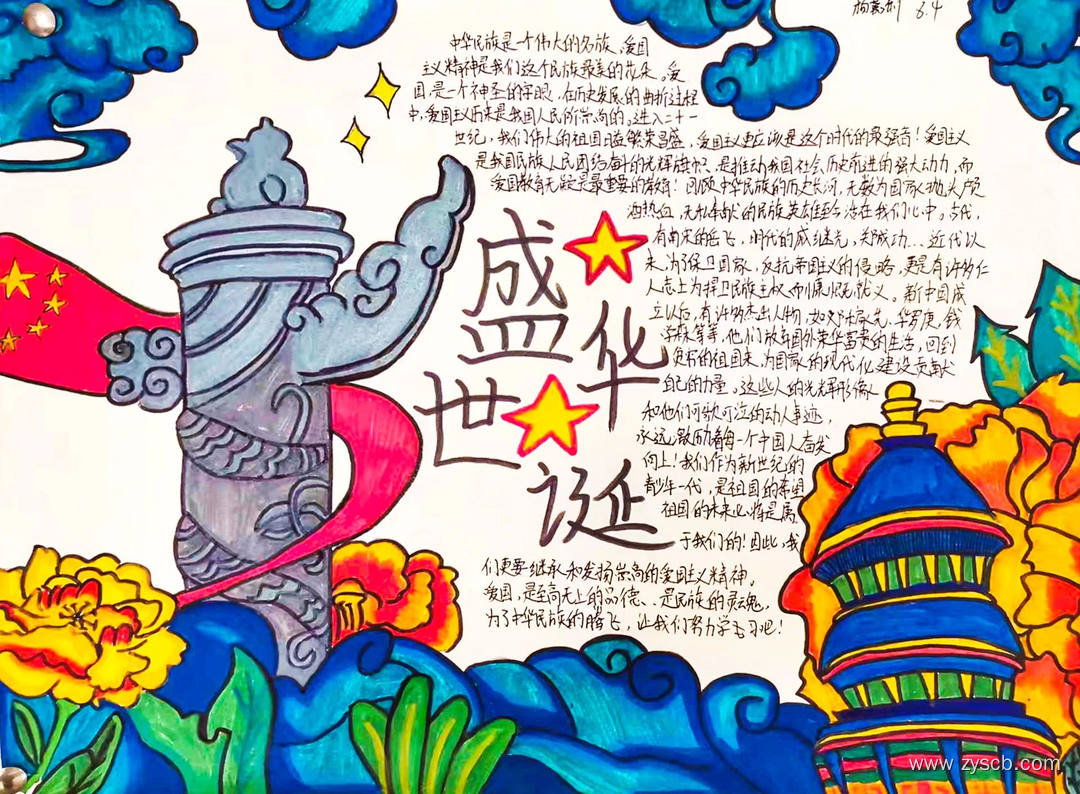 杨 6.4
中华民族是一个伟大的名族、爱国
主义精神是我们这个民族最美的花朵。爱
国,是一个神圣的字眼,在历史发展的曲折过程
中,爱国主义历来是我国人民所崇尚的。进入二十一
世纪,我们伟大的祖国日益繁荣昌盛,爱国主义更应该是这个时代的最强音!爱国主义
是我国民族人民团结奋斗的光辉旗帜,是推动我国社会历史前进的强大动力,而
爱国教育无疑是最重要的教育!回顾中华民族的历史长河,无数为国家抛头颅
洒热血,无私奉献的民族英雄至今活在我们心中。古代,
有南宋的岳飞,明代的戚继光,郑成功…近代以
来,为了保卫国家,反抗帝国主义的侵略,更是有许多仁
人志士为捍卫民族主权而慷慨就义。新中国成
立以后,有许多杰出人物,如邓稼先、华罗庚、钱
学森等等,他们放弃国外荣华富贵的生活,回到
贫穷的祖国来,为国家的现代化建设贡献
自己的力量。这些人的光辉形像
和他们可歌可泣的动人事迹,
永远激励着每一个中国人奋发
向上!我们作为新世纪的
青少年一代,是祖国的希望
祖国的未来必将是属
于我们的!因此,我
们更要继承和发扬崇高的爱国主义精神。
爱国,是至高无上的品德、是民族的灵魂,
为了中华民族的腾飞,让我们努力学习吧!
盛世
华诞
www.zyscb.com